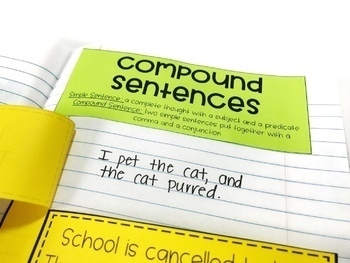 compound
sentences
Simple Sentence: a complete thought with a subject and a predicate
Compound Sentence: two simple sentences put together with a
comma and a conjunction
I pet the cat, and
the cat purred.
School is cancelled